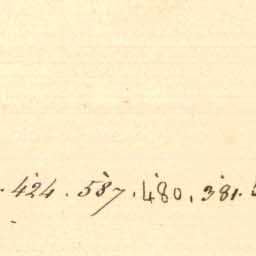 . 424 . 587 . 480 . 381 .